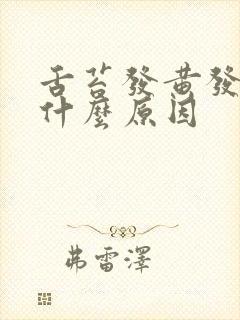 舌苔發黃發
什麼原因
弗雷澤